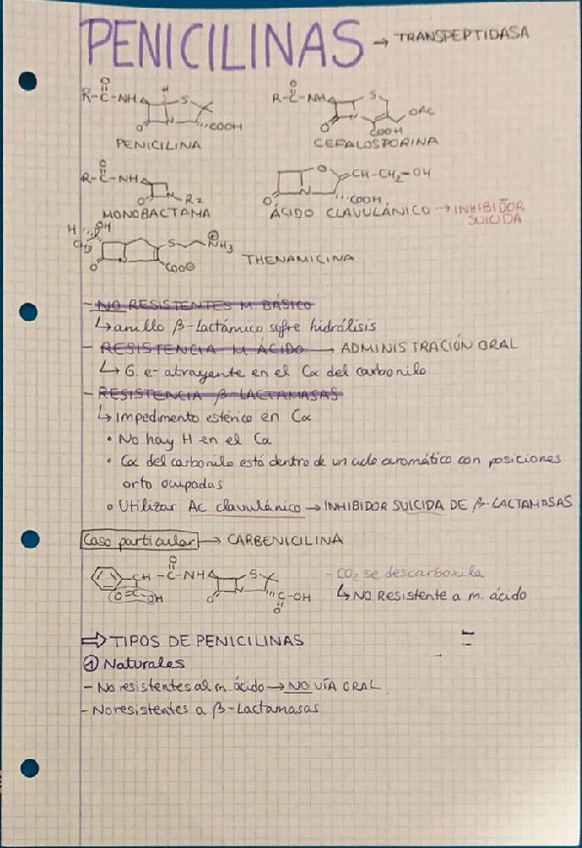 PENICILINAS → TRANSPEPTIDASA
R-C-NH S N O COOH
PENICILINA
R-C-NH S N O OAc COOH
CEFALOSPORINA
R-C-NH O N-R2
MONOBACTAMA
O N O CH-CH2-OH COOH
ÁCIDO CLAVULÁNICO → INHIBIDOR SUICIDA
H OH CH3 S NH3 O N COO⊖
THENAMICINA
- NO RESISTENTES M BÁSICO
↳ anillo β-lactámico sufre hidrólisis
- RESISTENCIA M. ÁCIDO → ADMINISTRACIÓN ORAL
↳ G. e- atrayente en el Cα del carbonilo
- RESISTENCIA β LACTAMASAS
↳ Impedimento estérico en Cα
• No hay H en el Cα
• Cα del carbonilo está dentro de un ciclo aromático con posiciones
orto ocupadas
• Utilizar Ac clavulánico → INHIBIDOR SUICIDA DE β-LACTAMASAS
Caso particular → CARBENICILINA
CH-C-NH S N O C-OH
O=C-OH
- CO2 se descarboxila
↳ NO RESISTENTE a m. ácido
⇒ TIPOS DE PENICILINAS
① Naturales
- No resistentes al m. ácido → NO VÍA ORAL
- No resistentes a β-Lactamasas